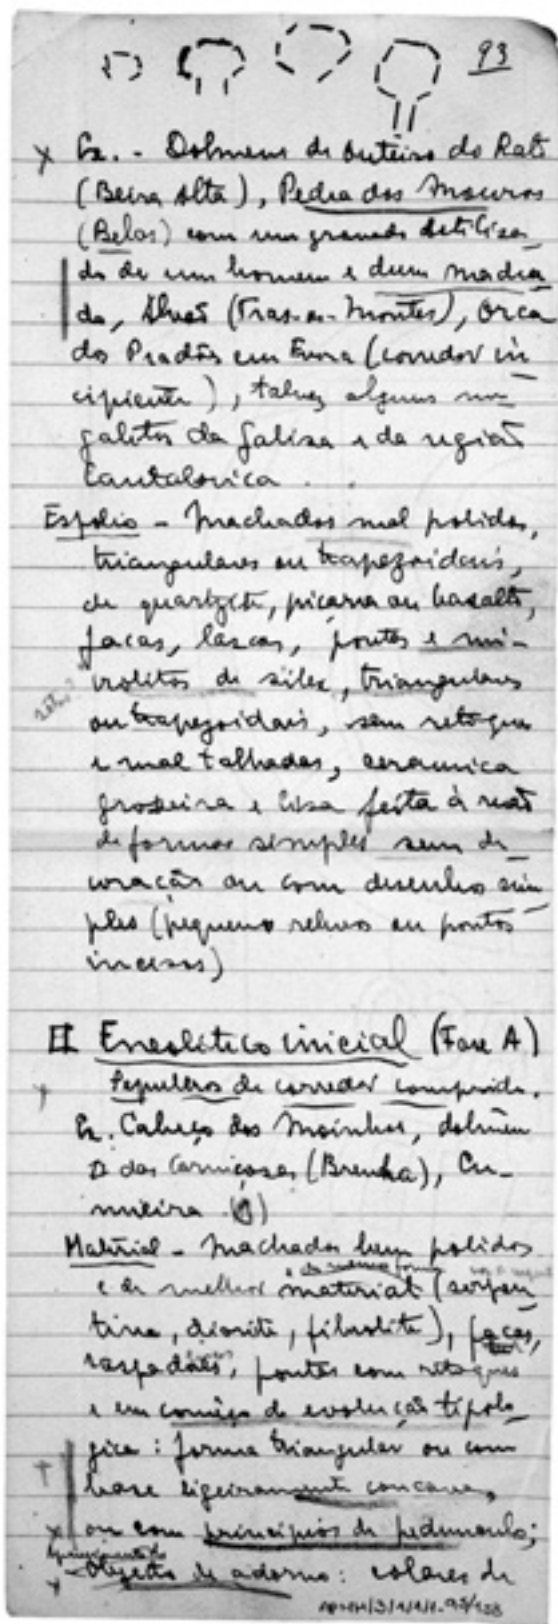 93
x Ex. - Dolmens de Outeiro do Rato
(Beira Alta), Pedra dos Mouros
(Belas) com uma gravado
do de um homem e dum macha
do, Alvão (Traz-os-Montes), Orca
dos Pradões em Evora (corredor in
cipiente), talvez alguns me-
galitos da Galiza e da região
Cantabrica.
Espolio - Machados mal polidos,
triangulares ou trapezoidais,
de quartzite, piçarra ou basalto,
facas, lascas, pontas e mi-
crolitos de silex, triangulares
ou trapezoidais, sem retoques
e mal talhadas, ceramica
grosseira e lisa feita à mão
de formas simples sem de-
coração ou com desenho sim
ples (pequeno relevos ou pontos
incisos)
II Eneolitico inicial (Fase A)
Sepulcros de corredor comprido.
Ex. Cabeço dos Moinhos, dolmen
das Carniçosas (Brenha), Cu-
mieira
Material - Machados bem polidos
da mesma forma
e de melhor material (serpen
tina, diorite, fibrolite), facas,
raspadores, pontas com retoques
e em começo de evolução tipolo-
gica: forma triangular ou com
base ligeiramente concava,
x ou com principios de pedunculo;
Objectos de adorno: colares de